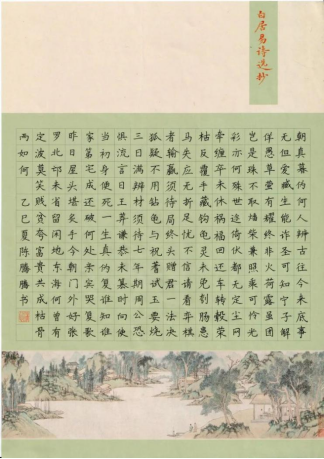 白居易诗选抄
朝真暮伪何人辨古往今来底事
无但爱臧生能诈圣可知宁子解
佯愚草萤有耀终非火荷露虽团
岂是珠不取燔柴兼照乘可怜光
彩亦何殊世途倚伏都无定尘网
牵缠卒未休祸福回还车转毂荣
枯反覆手藏钩龟灵未免刳肠患
马失应无折足忧不信请看弈棋
者输赢须待局终头赠君一法决
狐疑不用钻龟与祝蓍试玉要烧
三日满辨材须待七年期周公恐
惧流言日王莽谦恭未篡时向使
当初身便死一生真伪复谁知谁
家第宅成还破何处亲宾哭复歌
昨日屋头堪炙手今朝门外好张
罗北邙未省留闲地东海何曾有
定波莫笑贱贫夸富贵共成枯骨
两如何 乙巳夏陈腾腾书